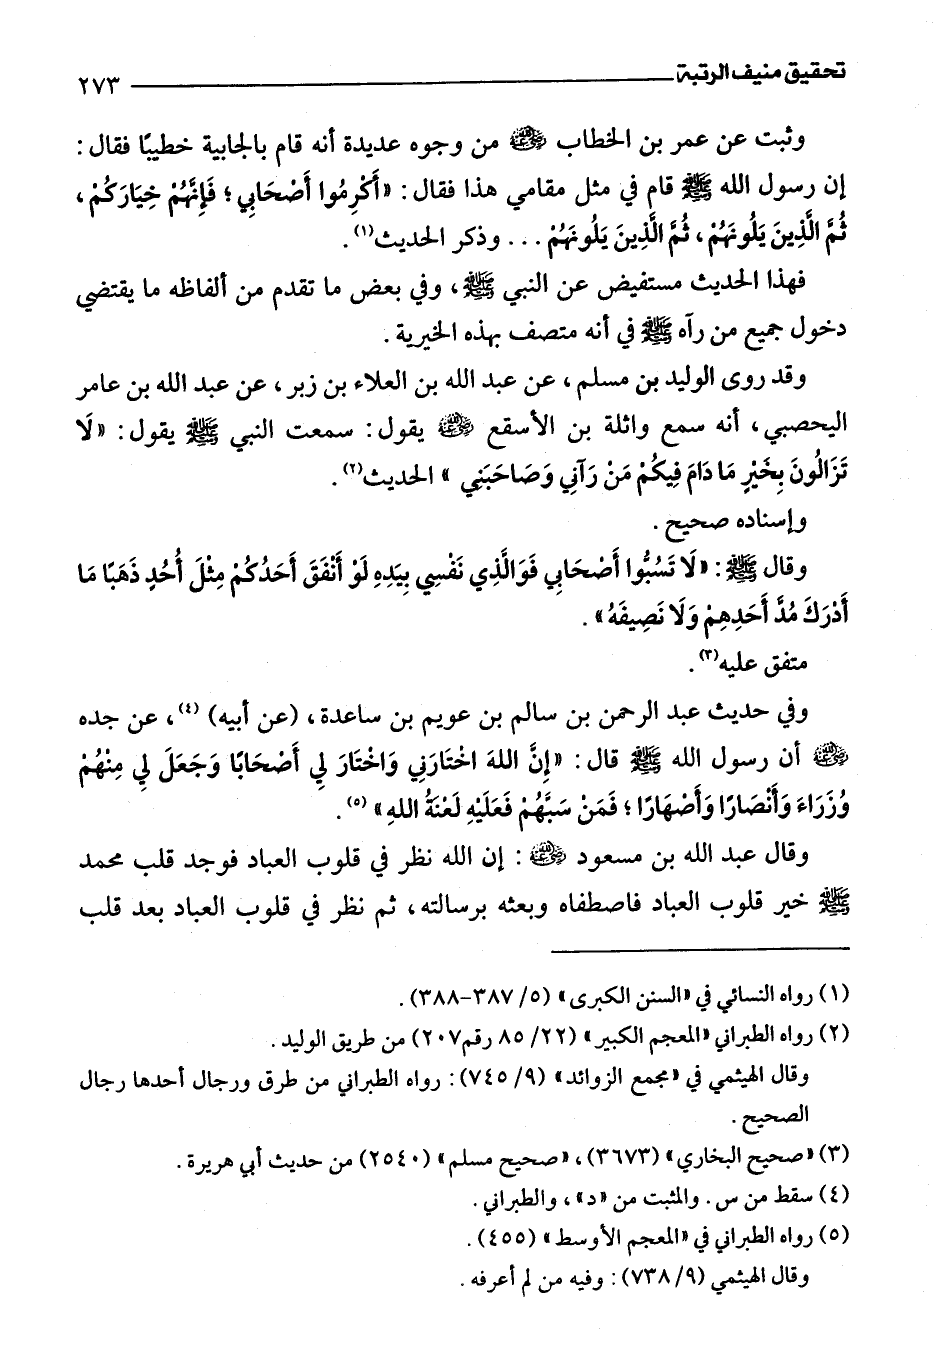 تحقيق منيف الرتبة ٢٧٣
وثبت عن عمر بن الخطاب ﵁ من وجوه عديدة أنه قام بالجابية خطيبًا فقال:
إن رسول الله ﷺ قام في مثل مقامي هذا فقال: «أَكْرِمُوا أَصْحَابِي؛ فَإِنَّهُمْ خِيَارَكُمْ،
ثُمَّ الَّذِينَ يَلُونَهُمْ، ثُمَّ الَّذِينَ يَلُونَهُمْ... وذكر الحديث(١).
فهذا الحديث مستفيض عن النبي ﷺ، وفي بعض ما تقدم من ألفاظه ما يقتضي
دخول جميع من رآه ﷺ في أنه متصف بهذه الخيرية.
وقد روى الوليد بن مسلم، عن عبد الله بن العلاء بن زبر، عن عبد الله بن عامر
اليحصبي، أنه سمع واثلة بن الأسقع ﵁ يقول: سمعت النبي ﷺ يقول: «لَا
تَزَالُونَ بِخَيْرٍ مَا دَامَ فِيكُمْ مَنْ رَآنِي وَصَاحَبَنِي» الحديث(٢).
وإسناده صحيح.
وقال ﷺ: «لَا تَسُبُّوا أَصْحَابِي فَوَالَّذِي نَفْسِي بِيَدِهِ لَوْ أَنْفَقَ أَحَدُكُمْ مِثْلَ أُحُدٍ ذَهَبًا مَا
أَدْرَكَ مُدَّ أَحَدِهِمْ وَلَا نَصِيفَهُ».
متفق عليه(٣).
وفي حديث عبد الرحمن بن سالم بن عويم بن ساعدة، (عن أبيه)(٤)، عن جده
﵁ أن رسول الله ﷺ قال: «إِنَّ اللهَ اخْتَارَنِي وَاخْتَارَ لِي أَصْحَابًا وَجَعَلَ لِي مِنْهُمْ
وُزَرَاءَ وَأَنْصَارًا وَأَصْهَارًا؛ فَمَنْ سَبَّهُمْ فَعَلَيْهِ لَعْنَةُ اللهِ»(٥).
وقال عبد الله بن مسعود ﵁: إن الله نظر في قلوب العباد فوجد قلب محمد
ﷺ خير قلوب العباد فاصطفاه وبعثه برسالته، ثم نظر في قلوب العباد بعد قلب
(١) رواه النسائي في «السنن الكبرى» (٥/ ٣٨٧-٣٨٨).
(٢) رواه الطبراني «المعجم الكبير» (٢٢/ ٨٥ رقم٢٠٧) من طريق الوليد.
وقال الهيثمي في «مجمع الزوائد» (٩/ ٧٤٥): رواه الطبراني من طرق ورجال أحدها رجال
الصحيح.
(٣) «صحيح البخاري» (٣٦٧٣)، «صحيح مسلم» (٢٥٤٠) من حديث أبي هريرة.
(٤) سقط من س. والمثبت من «د»، والطبراني.
(٥) رواه الطبراني في «المعجم الأوسط» (٤٥٥).
وقال الهيثمي (٩/ ٧٣٨): وفيه من لم أعرفه.